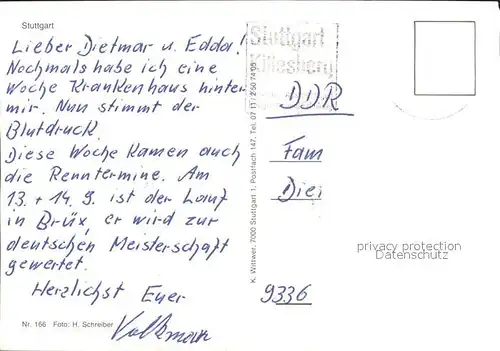 Stuttgart
Lieber Dietmar u. Edda!
Nochmals habe ich eine
Woche Krankenhaus hinter
mir. Nun stimmt der
Blutdruck.
Diese Woche kamen auch
die Renntermine. Am
13. + 14. 9. ist der Lauf
in Brüx, er wird zur
deutschen Meisterschaft
gewertet.
Herzlichst Euer
Volkmar
Nr. 166 Foto: H. Schreiber
K. Wittwer, 7000 Stuttgart 1, Postfach 147, Tel. 07 11 / 2 50 74 05
Stuttgart
Killesberg
DDR
Fam
Diet
privacy protection
Datenschutz
9336